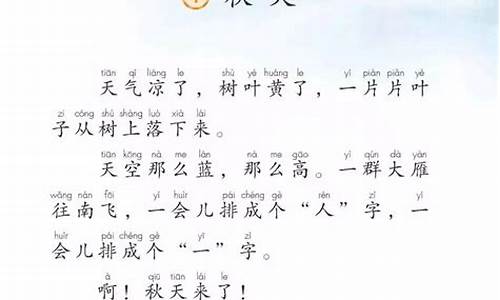 ① 秋天
tiān qì liáng le shù yè huáng le yí piàn piàn yè
天气凉了，树叶黄了，一片片叶
zi cóng shù shàng luò xià lái
子从树上落下来。
tiān kōng nà me lán nà me gāo yì qún dà yàn
天空那么蓝，那么高。一群大雁
wǎng nán fēi yí huìr pái chéng gè rén zì yí
往南飞，一会儿排成个“人”字，一
huìr pái chéng gè yī zì
会儿排成个“一”字。
à qiū tiān lái le
啊！秋天来了！